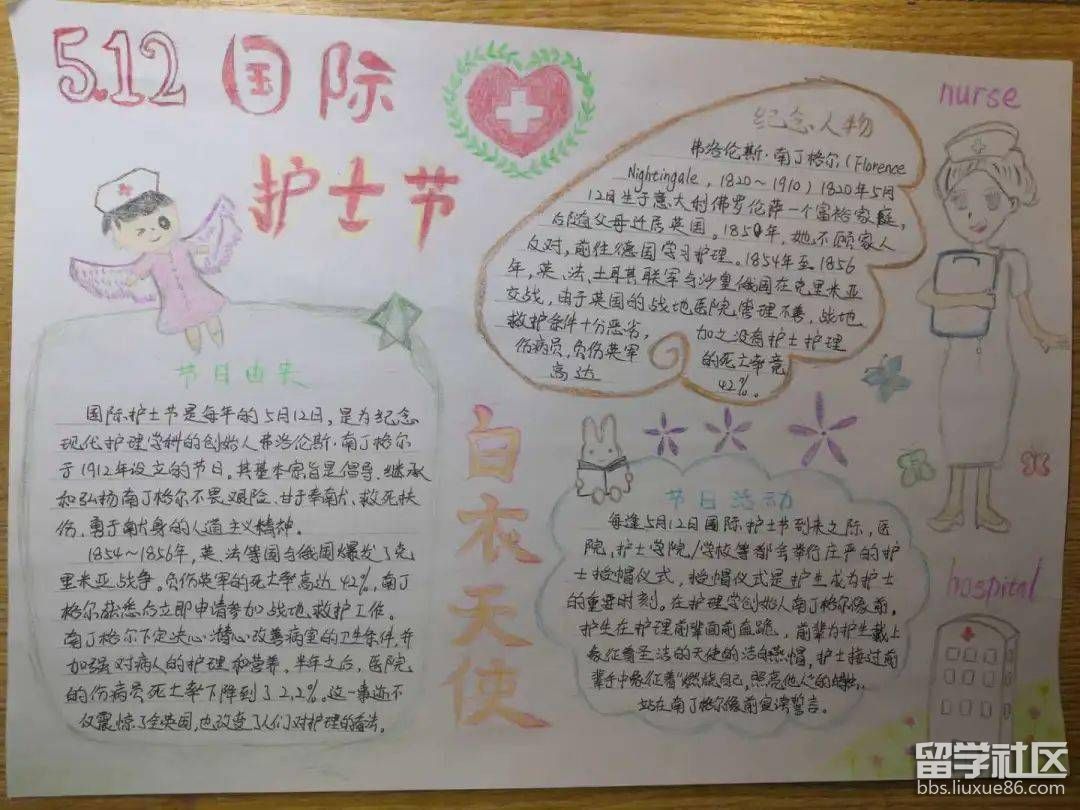 5.12国际
护士节
nurse
纪念人物
弗洛伦斯·南丁格尔(Florence
Nightingale, 1820~1910)1820年5月
12日生于意大利佛罗伦萨一个富裕家庭,
后随父母迁居英国。1850年,她不顾家人
反对,前往德国学习护理。1854年至1856
年,英、法、土耳其联军与沙皇俄国在克里米亚
交战,由于英国的战地医院管理不善,战地
救护条件十分恶劣, 加之没有护士护理
伤病员,负伤英军 的死亡率竟
高达 42%。
节日由来
国际护士节是每年的5月12日,是为纪念
现代护理学科的创始人弗洛伦斯·南丁格尔
于1912年设立的节日。其基本宗旨是倡导、继承
和弘扬南丁格尔不畏艰险、甘于奉献、救死扶
伤、勇于献身的人道主义精神。
1854~1856年,英、法等国与俄国爆发了克
里米亚战争。负伤英军的死亡率高达42%,南丁
格尔获悉后立即申请参加战地救护工作。
南丁格尔下定决心潜心改善病室的卫生条件,并
加强对病人的护理和营养,半年之后,医院
的伤病员死亡率下降到了2.2%。这一事迹不
仅震惊了全英国,也改变了人们对护理的看法。
白衣天使
节日活动
每逢5月12日国际护士节到来之际,医
院,护士学院/学校等都会举行庄严的护
士授帽仪式,授帽仪式是护生成为护士
的重要时刻。在护理学创始人南丁格尔像前,
护生在护理前辈面前直跪,前辈为护生戴上
象征着圣洁的天使的洁白燕帽,护士接过前
辈手中象征着"燃烧自己,照亮他人"的蜡烛,
站在南丁格尔像前宣读誓言。
hospital
留学社区
bbs.liuxue86.com